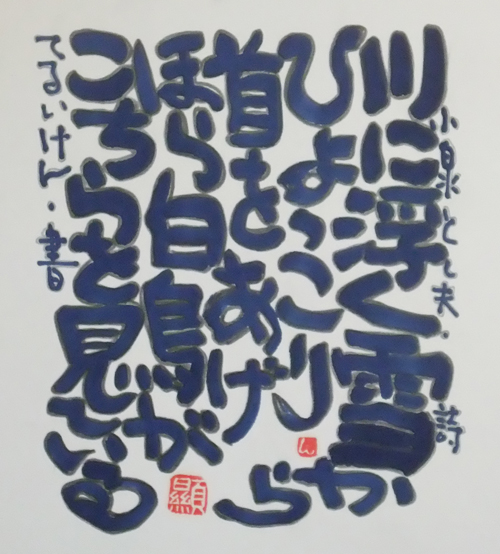 小泉とし夫・詩
川に浮く雪から
ひょっこり
ん
首をあげ
ほら白鳥が
顕
こちらを見ている
てるいけん・書